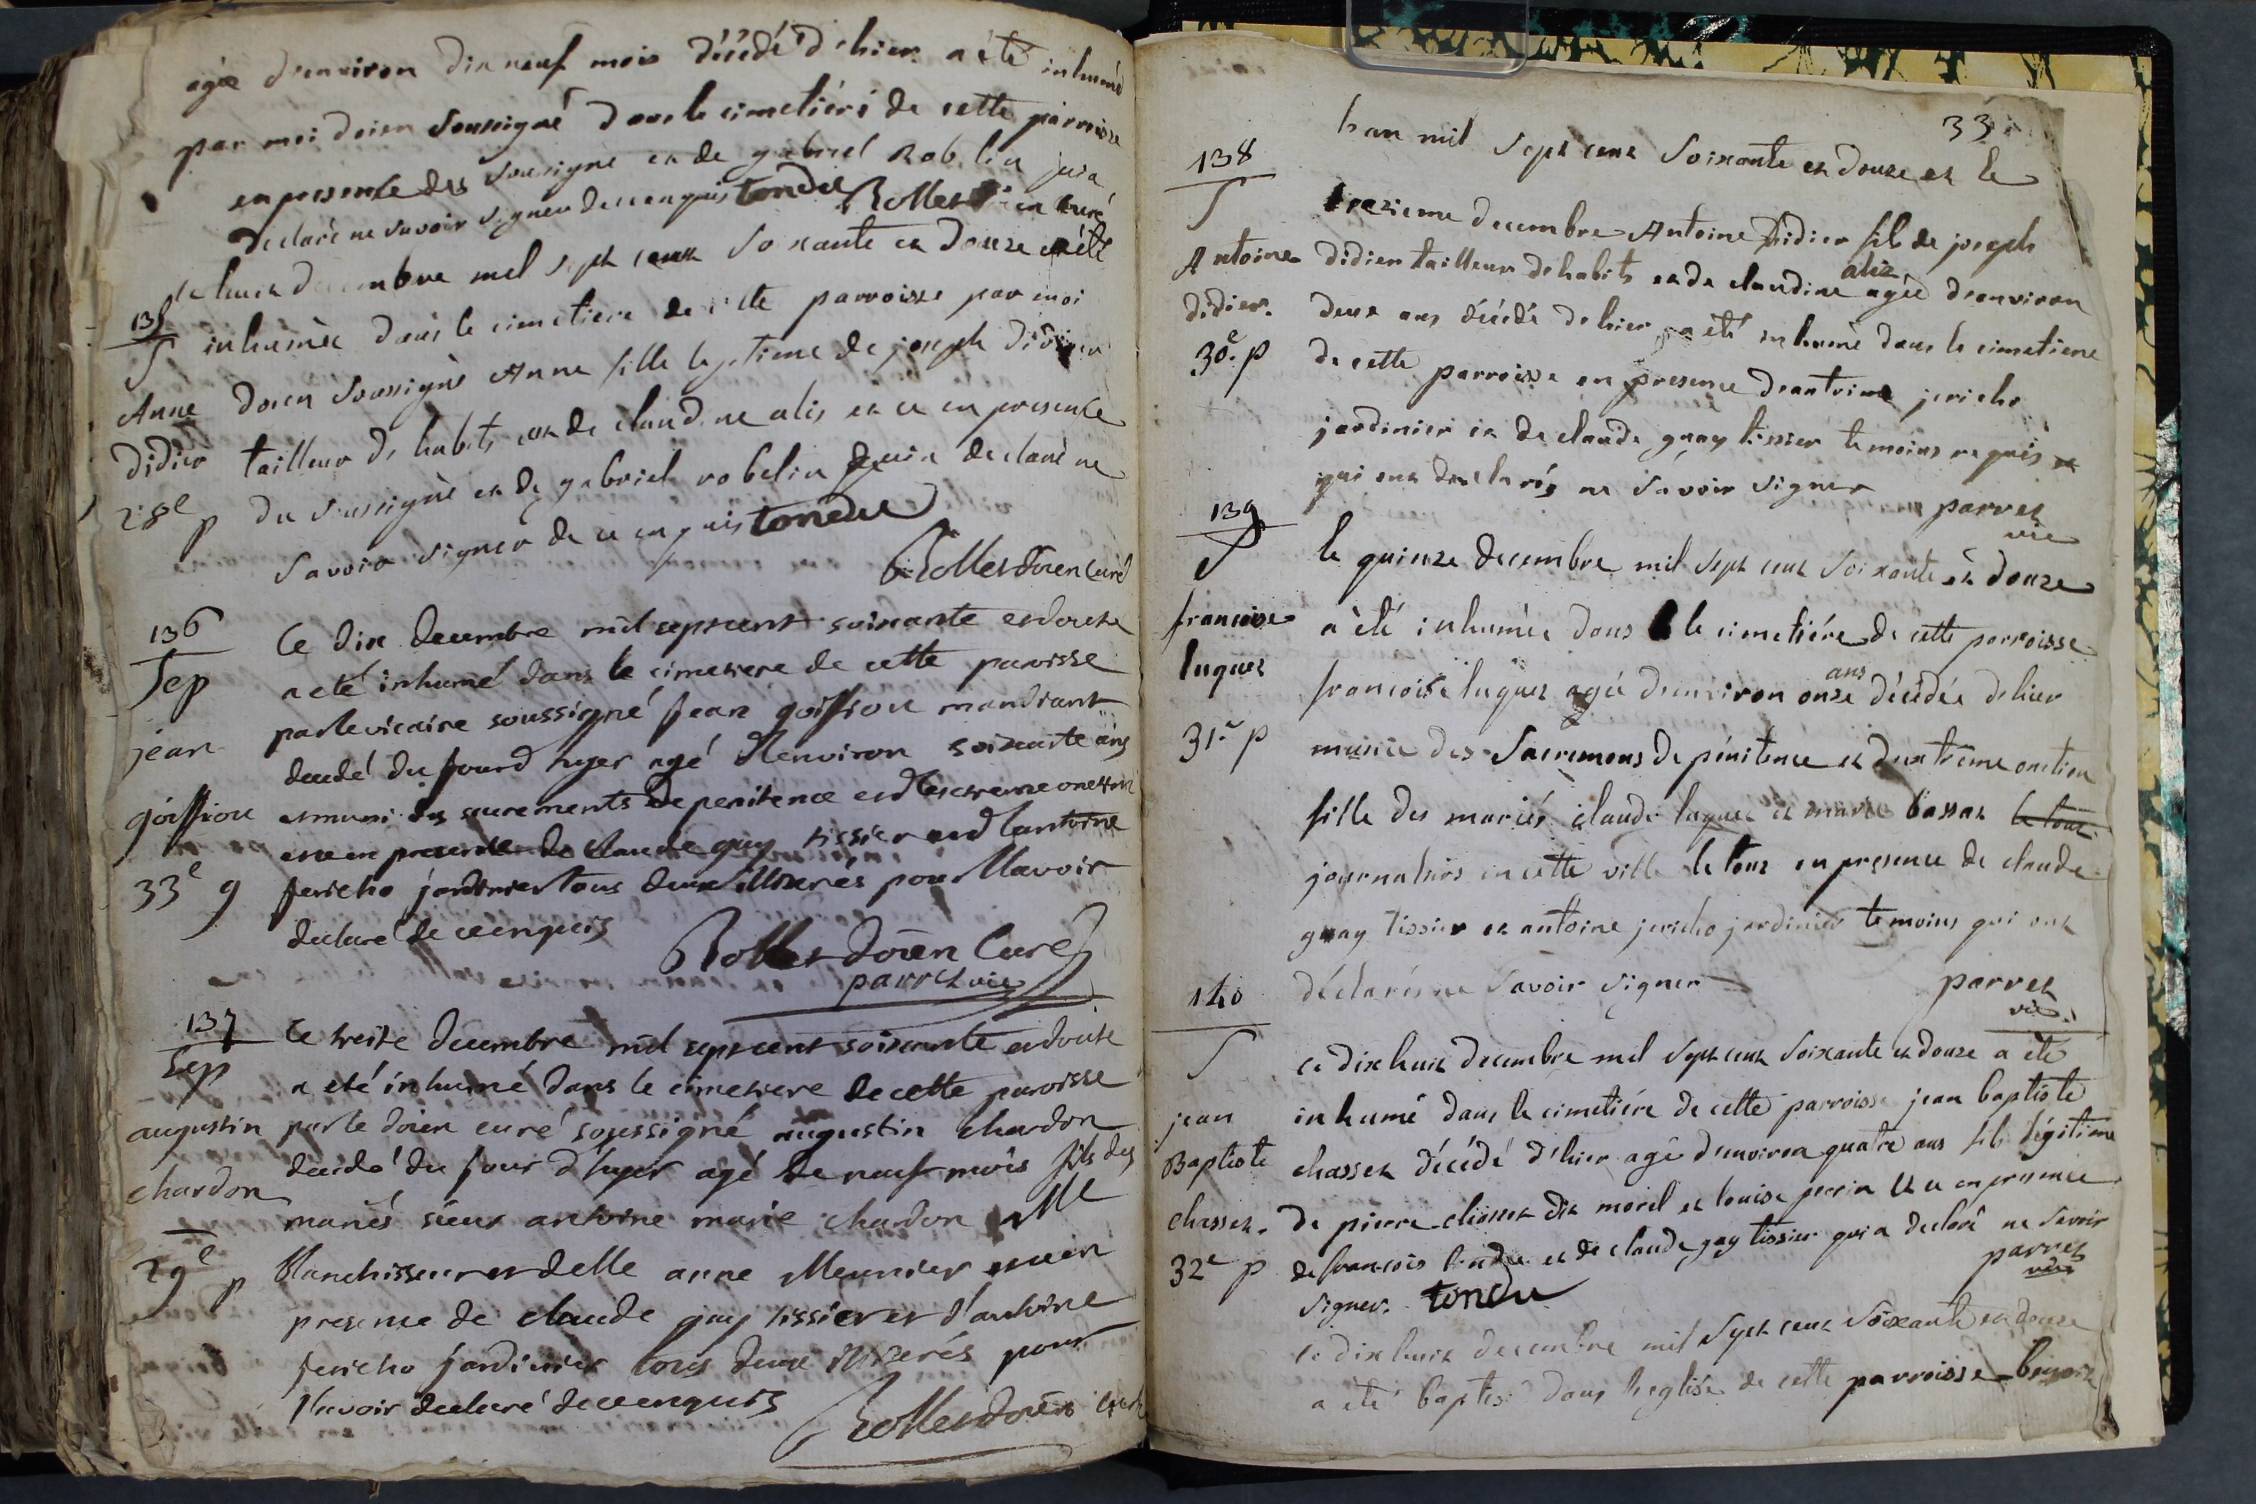 agée d'environ dix neuf mois décédé d'hier a été inhumé
par moi doien soussigné dans le cimetiére de cette parroisse
en presence des sousigné et de gabriel Robelin qui a
declaré ne savoir signer de ce enquis tondu Rollet doien curé
135
S
Anne
didier
28e p
le huit decembre mil sept cent soixante et douze a été
inhumée dans le cimetiere de cette parroisse par moi
doien soussigné Anne fille legitime de joseph didier
tailleur d'habits et de claudine alis et ce en presence
du soussigné et de gabriel robelin qui a declaré ne
savoir signer de ce enquis tondu
Rollet doien curé
136
Sep
jean
goiffion
33e g
Ce dix decembre mil sept cent soixante et douze
a eté inhumé dans le cimetiere de cette paroisse
par le vicaire soussigné jean goiffion mandiant
decedé du jour d hyer agé d'environ soixante ans
et muni des sacrements de penitence et d'extreme onction
et ce en presence de claude guy tissier et d'antoine
jericho jardinier tous deux illiterés pour l'avoir
declaré de ce enquis
Rollet doien Curé
parret vic
137
Sep
augustin
chardon
29e p
Ce treize decembre mil sept cent soixante et douze
a eté inhumé dans le cimetiere de cette paroisse
par le doien curé soussigné augustin chardon
decedé du jour d'hyer agé de neuf mois fils des
mariés sieur antoine marie chardon Me
blanchisseur et delle anne Meunier et ce en
presence de claude guy tissier et d'antoine
jericho jardinier tous deux illiterés pour
l'avoir declaré de ce enquis
Rollet doien curé
33
138
S
Antoine
didier.
30e. p
l'an mil sept cent soixante et douze et le
treizieme decembre Antoine didier fils de joseph
didier tailleur d'habits et de claudine alis agée d'environ
deux ans décédé d'hier a été inhumé dans le cimetiere
de cette parroisse en presence d'antoine jericho
jardinier et de claude guay tissier temoins requis et
qui ont declarés ne savoir signer
parret
vic
139
S
francoise
luquet
31e p
le quinze decembre mil sept cent soixante et douze
a été inhumée dans le cimetiére de cette parroisse
francoise luquet agée d'environ onze ans décédée d'hier
munie des Sacremens de pénitence et d'extrême onction
fille des mariés claude luquet et marie bassat le tout
journaliers en cette ville le tout en presence de claude
guay tissier et antoine jericho jardinier temoins qui ont
déclarés ne savoir signer
parret
vic.
140
S
jean
Baptiste
chasset.
32e p
ce dix huit decembre mil sept cent soixante et douze a été
inhumé dans le cimetiére de cette parroisse jean baptiste
chasset décédé d'hier agé d'environ quatre ans fils légitime
de pierre chasset dit morel et louise perrin et ce en presence
de francois tondu et de claude gay tissier qui a declaré ne savoir
signer. tondu
parret
vic
ce dix huit decembre mil sept cent soixante et douze
a été baptisé dans l'eglise de cette parroisse